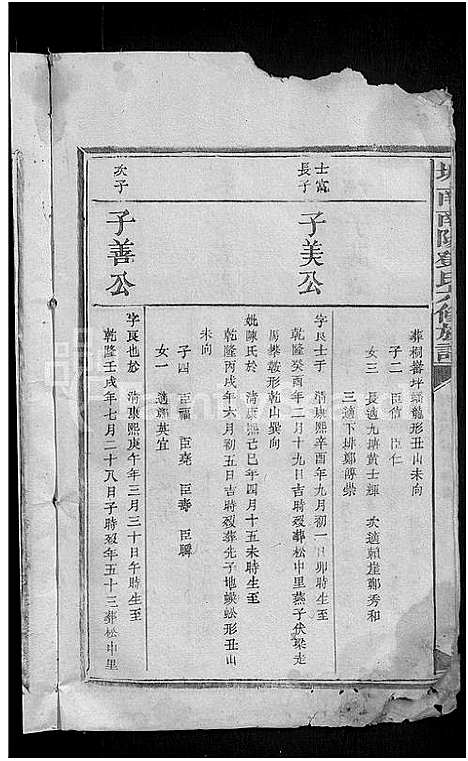 南陽鄧氏六修族譜
葬桐樹坪蟠龍形丑山未向
子二　臣信　臣仁
女三　長適九塘黃士輝　次適賴崖鄭秀和
三適下排鄭傳崇
士富長子
子美公
字良士于　清康熙辛酉年九月初一日卯時生至
乾隆癸酉年二月十九日吉時歿葬松中里燕子伏梁走
馬攀鞍形乾山巽向
妣陳氏於　清康熙己巳年四月十五未時生至
乾隆丙戌年六月初五日吉時歿葬先子地蜈蚣形丑山
未向
子四　臣福　臣堯　臣壽　臣騆
女一　適賴英宜
次子
子善公
字良也於　清康熙庚午年三月三十日午時生至
乾隆壬戌年七月二十八日子時歿年五十三葬松中里